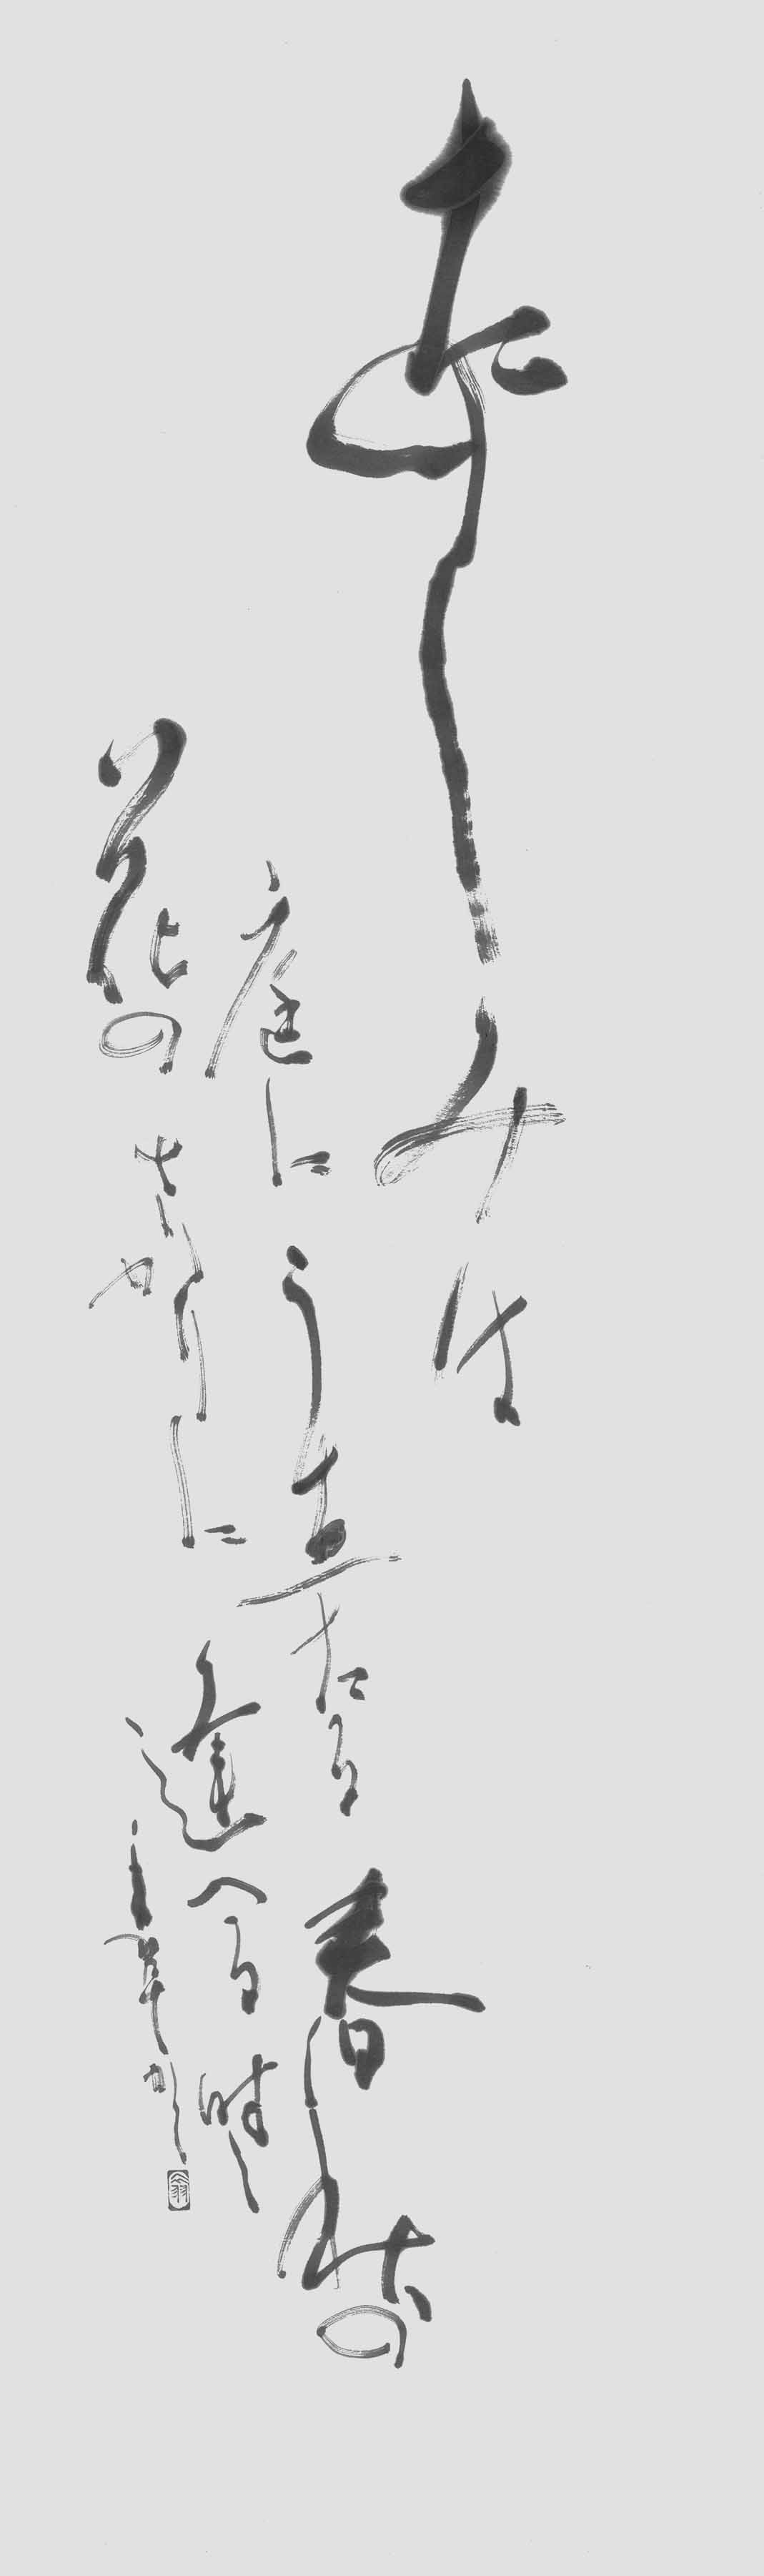 たのしみは
庭にうゑたる春秋の
花のさかりに逢へる時々